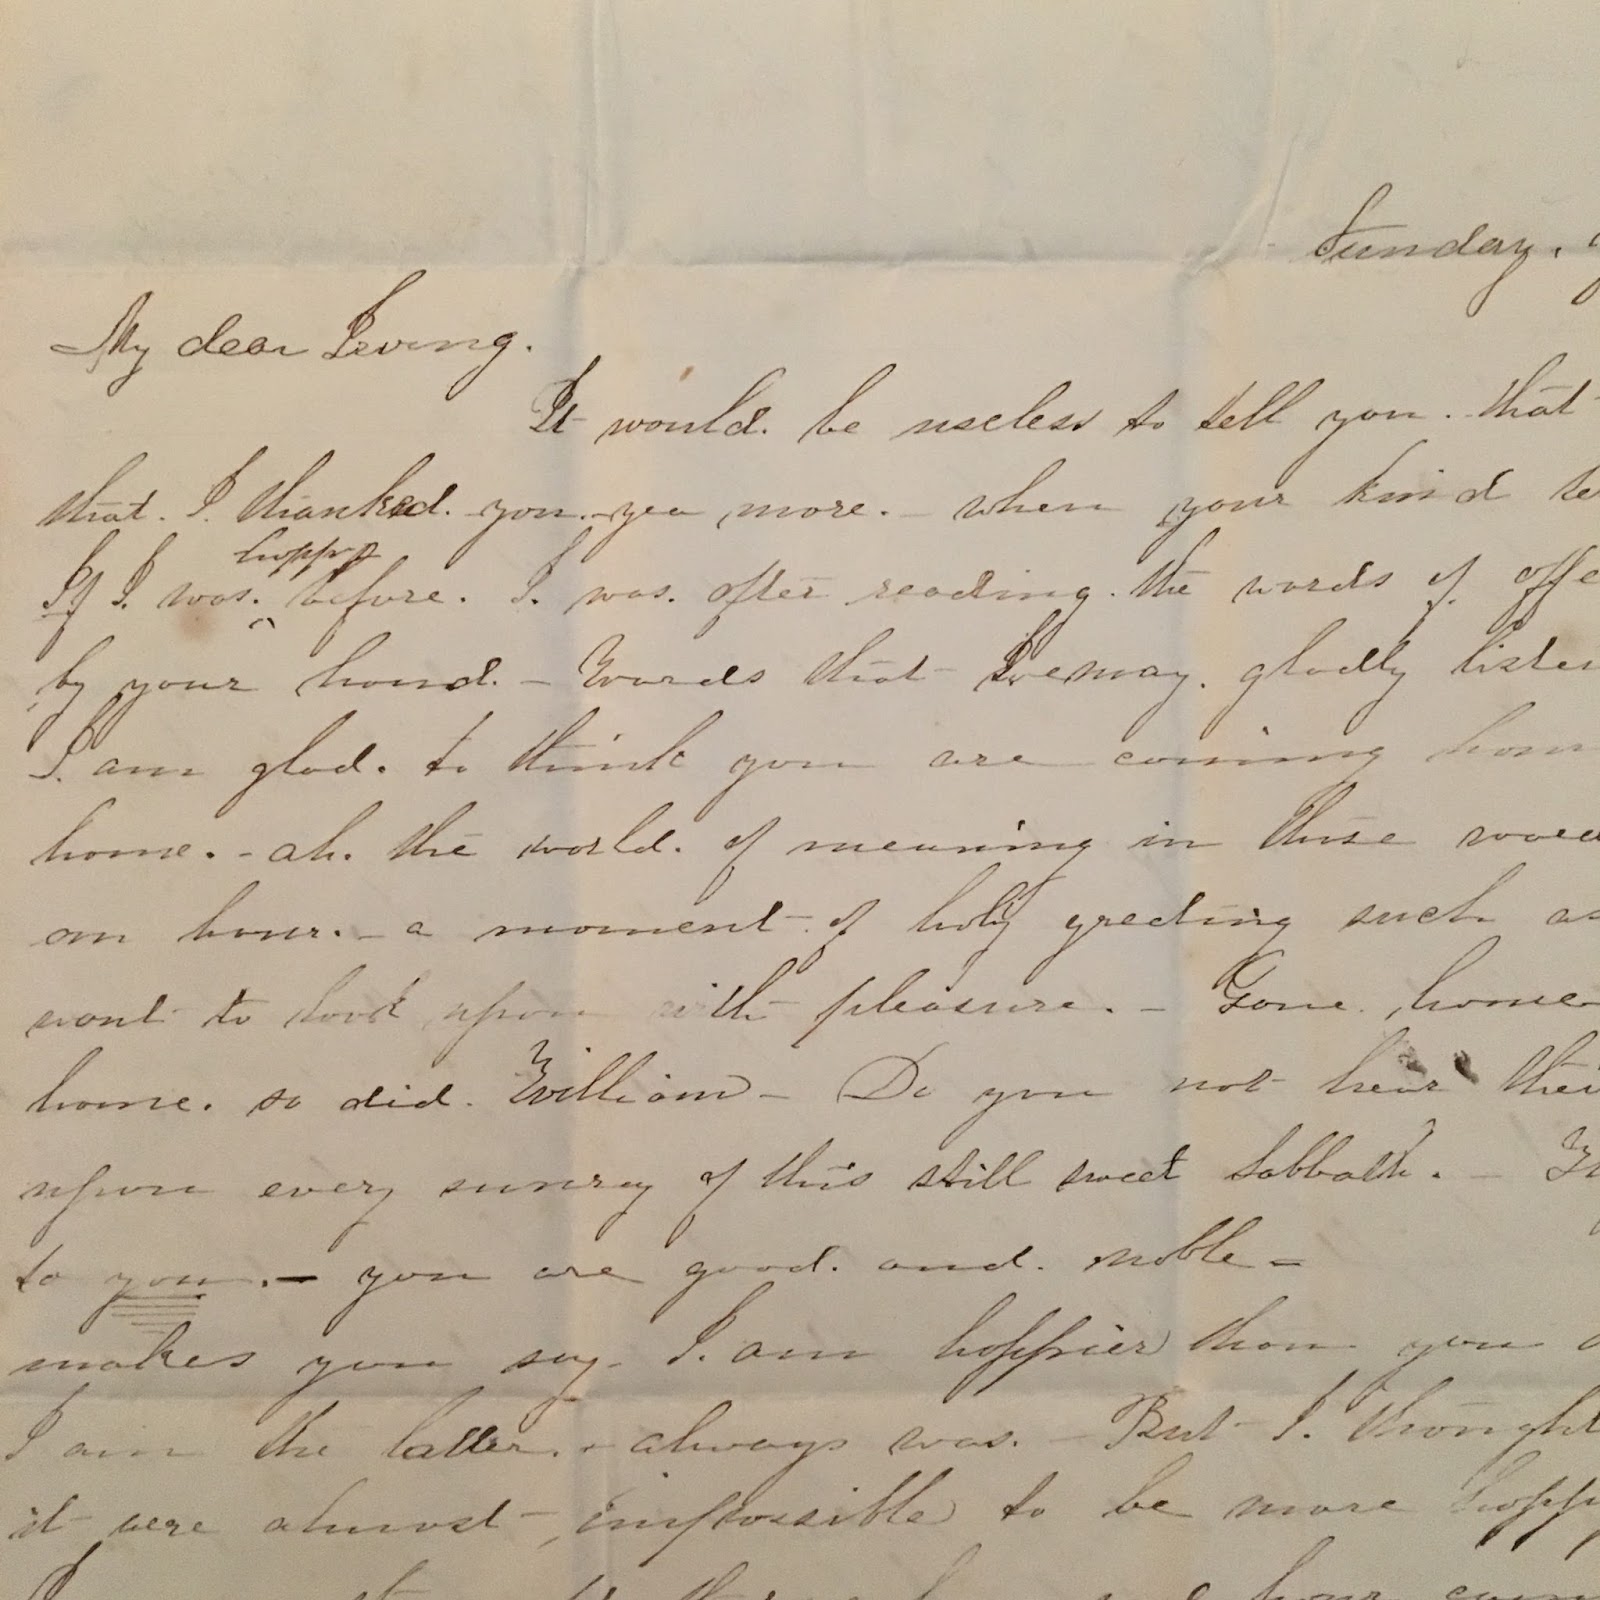 Sunday.
My dear Irving.
It would. be useless to tell you. that
that. I. thanked. you. - yea more. - when your kind
happy
If I. was. before. I. was. after reading. the words of.
by your hand. - Words that we may. gladly listen
I. am glad. to think you are coming
home. - ah. the world. of meaning in those
an hour. - a moment - of holy greeting such as
want to look upon with pleasure. - Gone. home
home. so did. William - Do you not hear
upon every sunray of this still sweet Sabbath. -
to you. - you are good. and. noble -
makes you say. I. am happier than you
I am the latter. - always was. - But I. thought
it were almost - impossible to be more